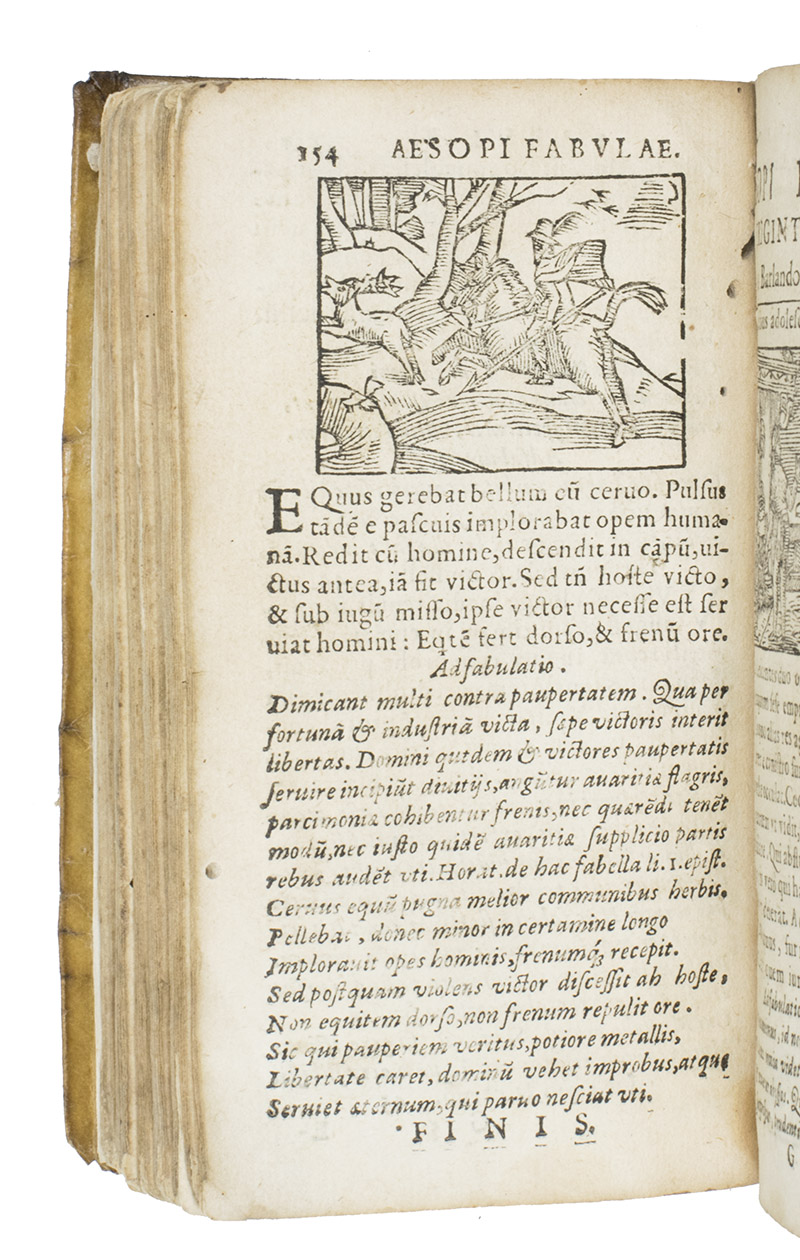 154 AESOPI FABVLAE.
EQuus gerebat bellum cū ceruo. Pulſus
tādē e paſcuis implorabat opem huma-
nā. Redit cū homine, deſcendit in cāpū, ui-
ctus antea, iā fit victor. Sed tn̄ hoſte victo,
& ſub iugū miſſo, ipſe victor neceſſe eſt ſer
uiat homini: Eqtē fert dorſo, & frenū ore.
Adfabulatio.
Dimicant multi contra paupertatem. Qua per
fortunā & induſtriā victa, ſepe victoris interit
libertas. Domini qutdem & victores paupertatis
ſeruire incipiūt diuitijs, angūtur auaritiæ flagris,
parcimoniæ cohibentur frenis, nec quærēdi tenēt
modū, nec iuſto quidē auaritiæ ſupplicio partis
rebus audēt vti. Horat. de hac fabella li. 1. epiſt.
Ceruus equū pugna melior communibus herbis,
Pellebat, donec minor in certamine longo
Implorauit opes hominis, frenumq́ꝫ recepit.
Sed poſtquam violens victor diſceſſit ab hoſte,
Non equitem dorſo, non frenum repulit ore.
Sic qui pauperiem veritus, potiore metallis,
Libertate caret, dominū vehet improbus, atque
Seruiet æternum, qui paruo neſciat vti.
FINIS.
OPI
Barlando
G